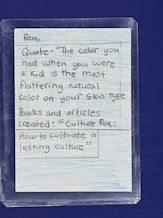 Remi
Quote - "The color you
had when you were
a kid is the most
flattering natural
color on your skin type
Books and articles
created: "Culture Pox:
How to cultivate a
lasting culture"